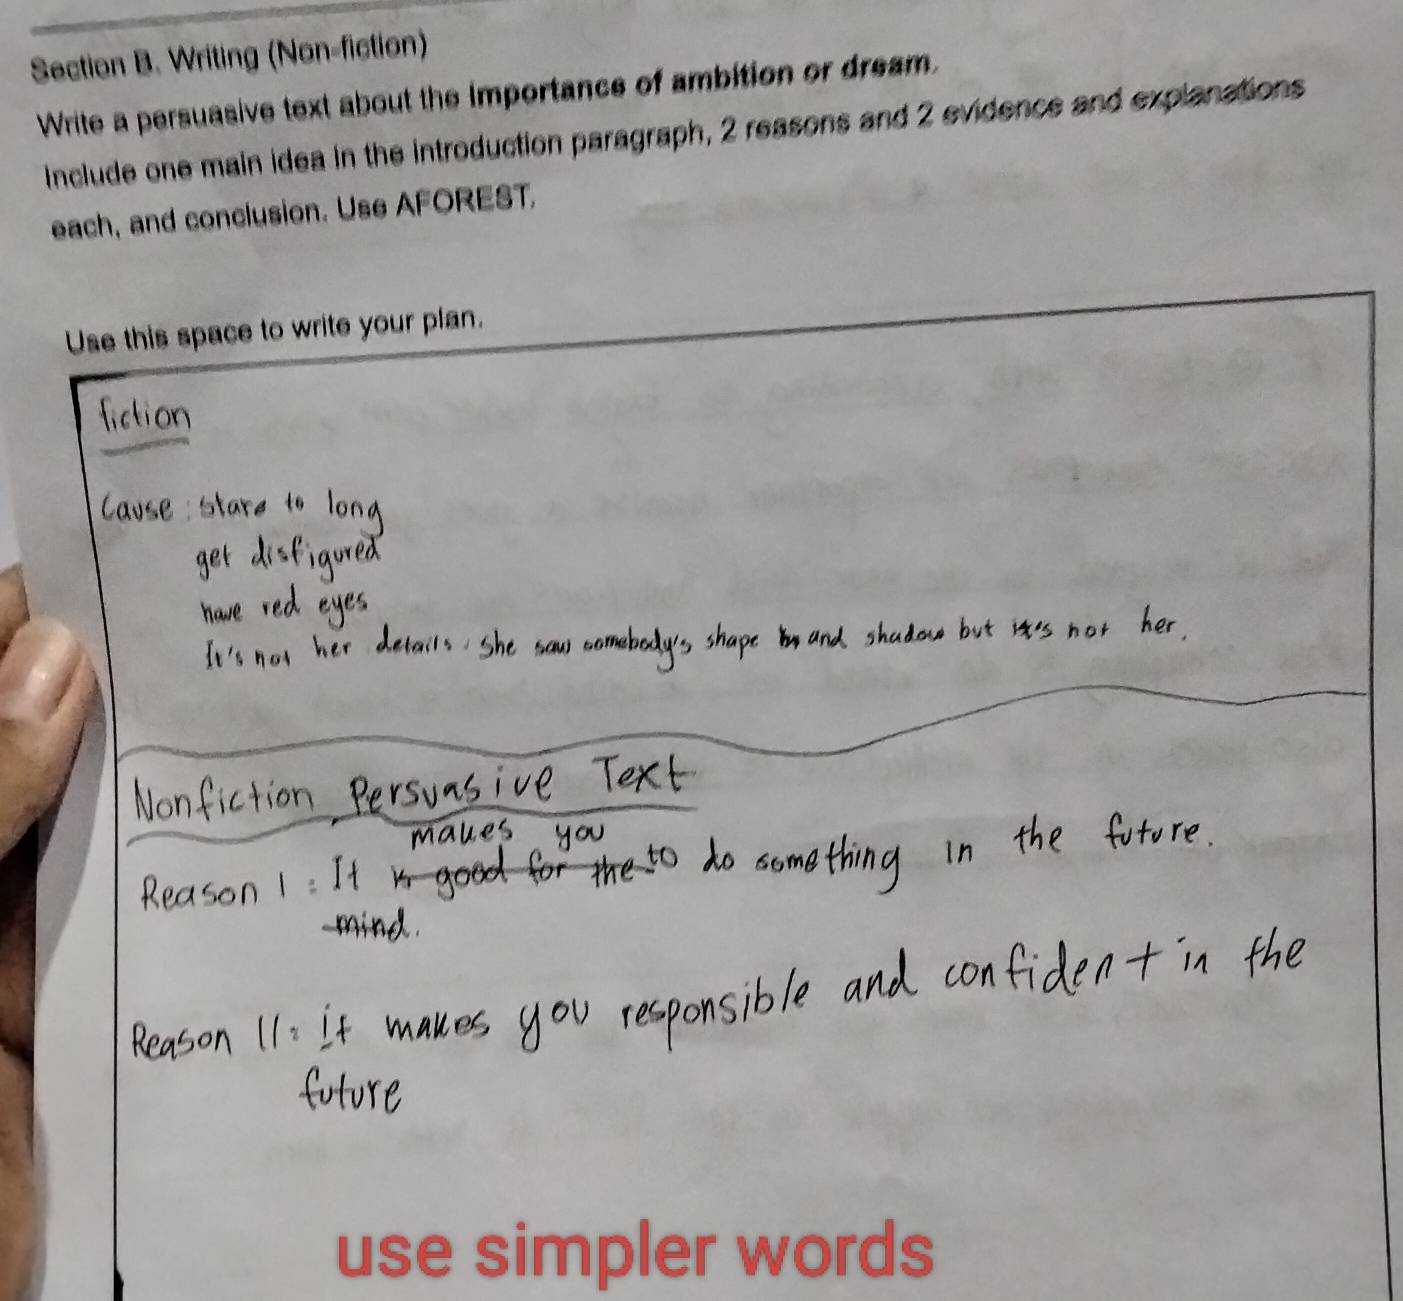 Section B. Writing (Non-fiction)
Write a persuasive text about the importance of ambition or dream.
Include one main idea in the introduction paragraph, 2 reasons and 2 evidence and explanations
each, and conclusion. Use AFOREST.
Use this space to write your plan.
fiction
Cause: stare to long
get disfigured
have red eyes
It's not her details. She saw somebody's shape and shadow but it's not her.
Nonfiction, Persuasive Text
makes you
Reason 1: It is good for the to do something in the future.
mind.
Reason 11: it makes you responsible and confident in the
future
use simpler words